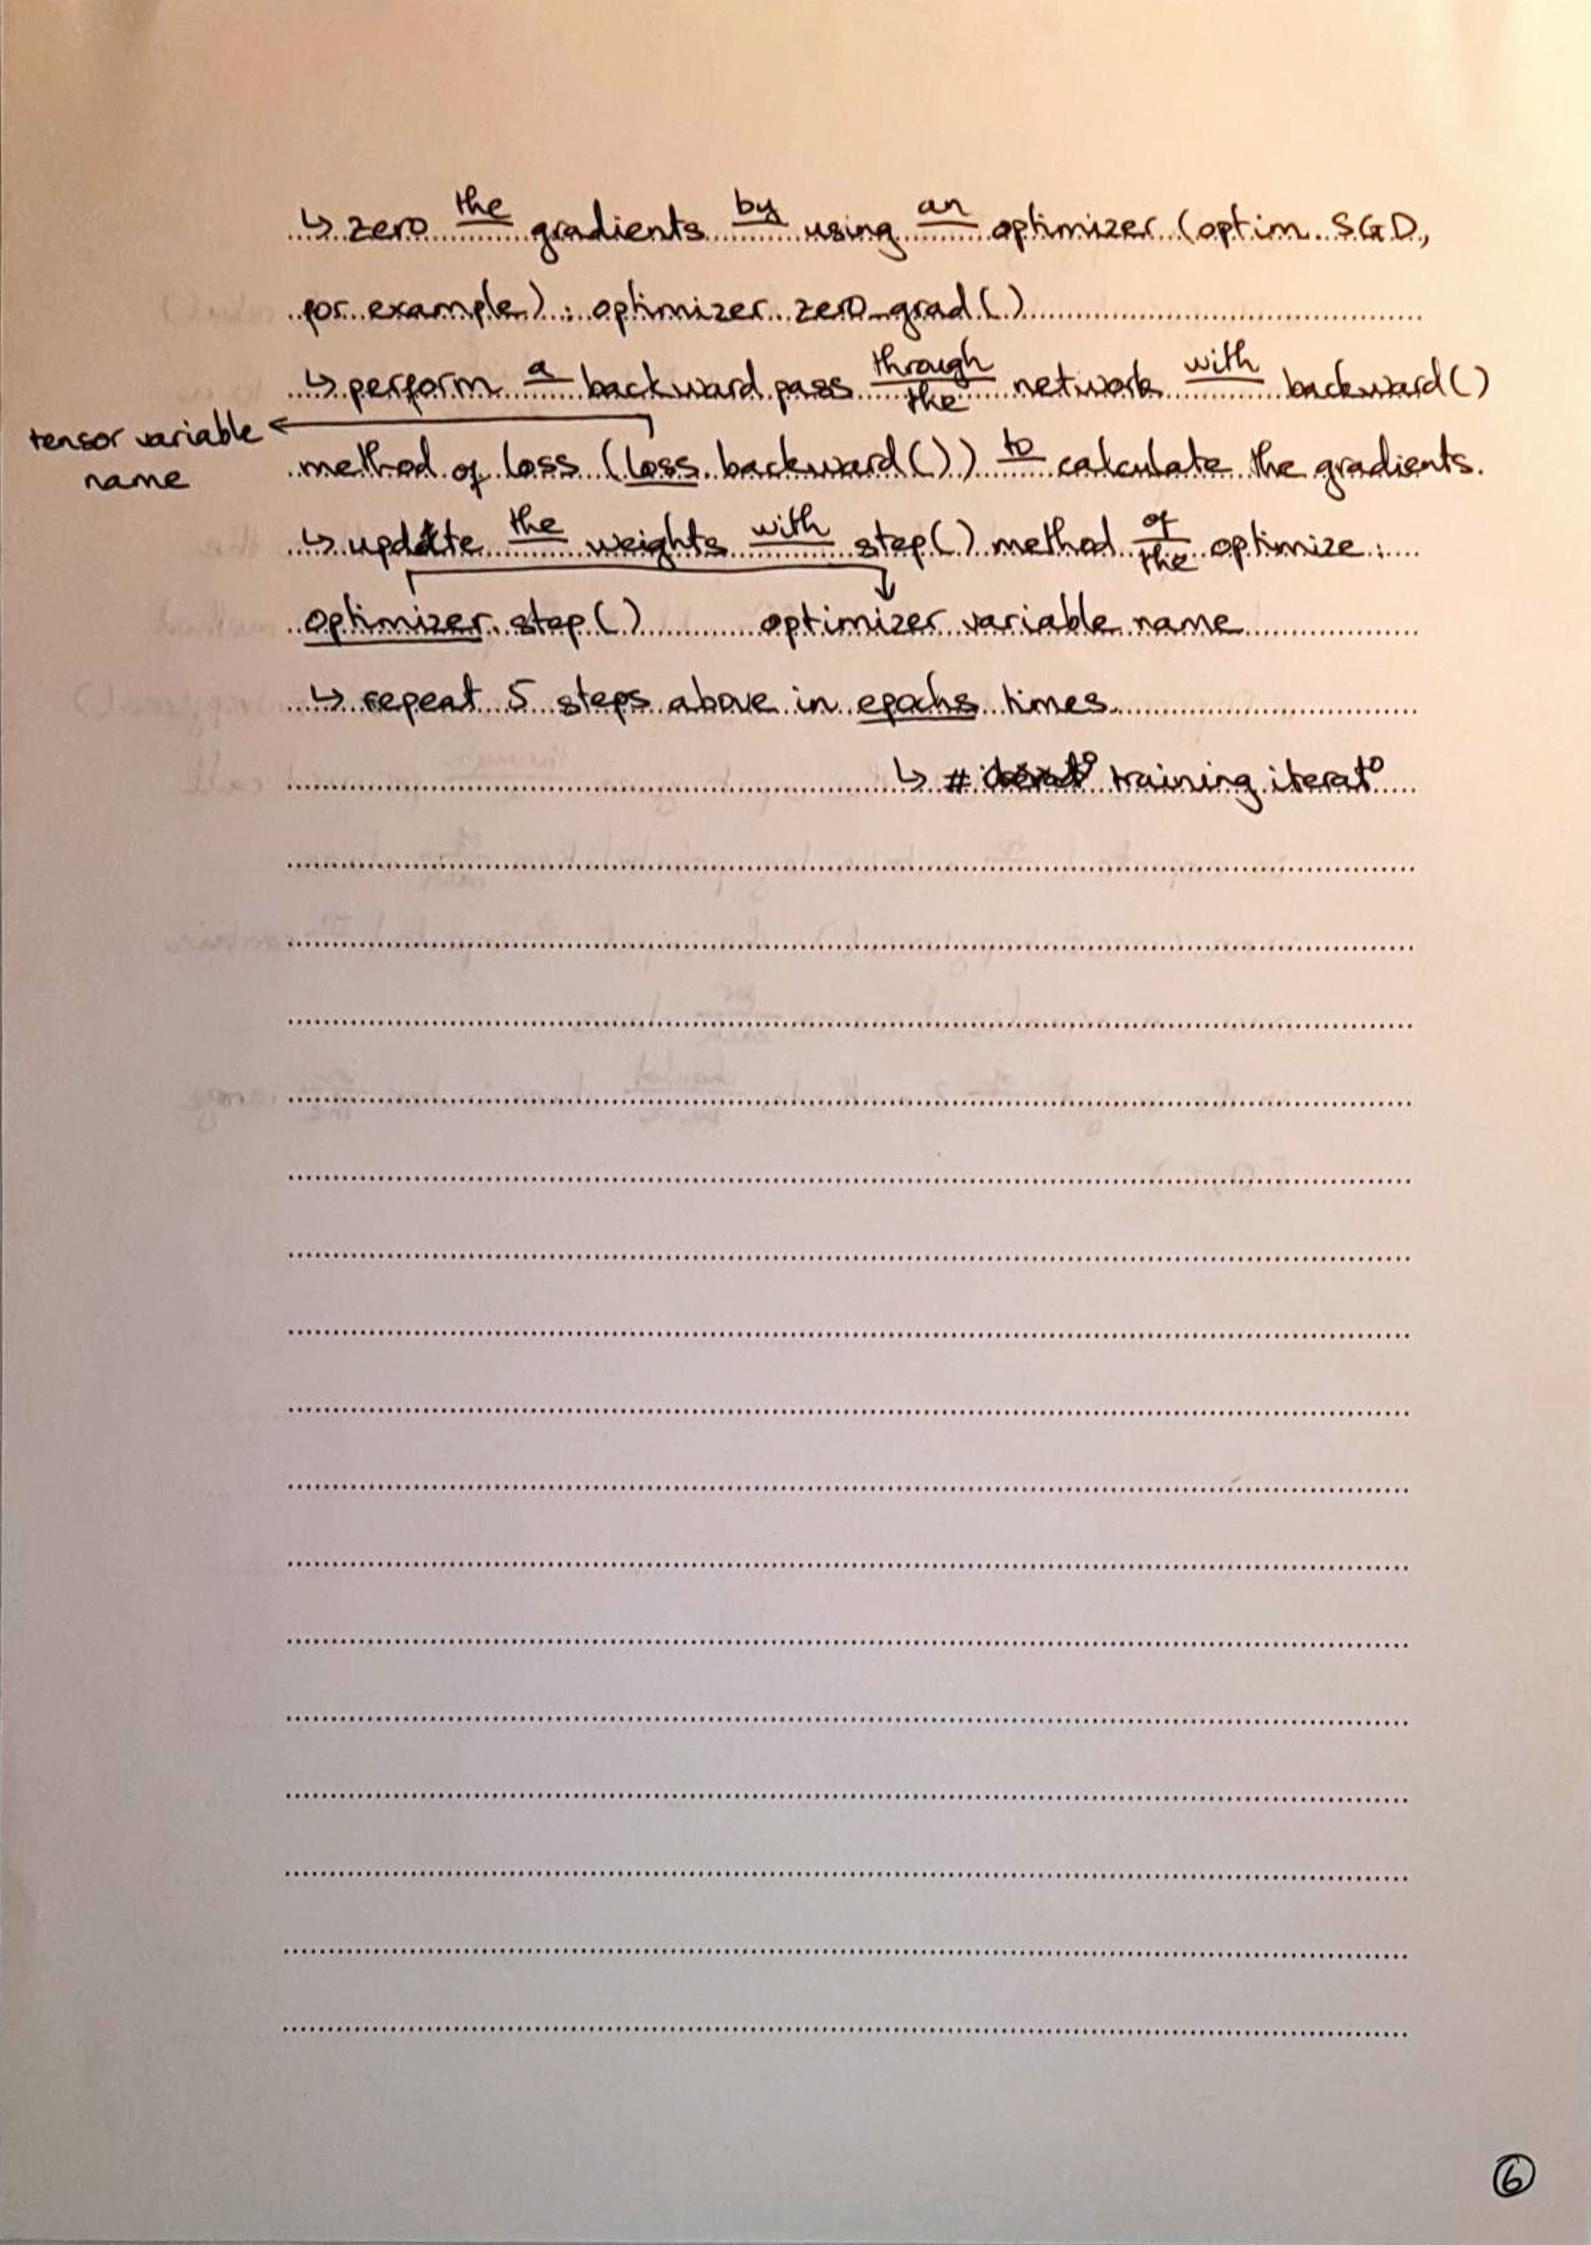 ↳ zero the gradients by using an optimizer (optim.SGD,
for example) : optimizer.zero_grad()
↳ perform a backward pass through the network with backward()
tensor variable name
method of loss (loss.backward()) to calculate the gradients.
↳ update the weights with step() method of the optimize :
optimizer.step() optimizer variable name
↳ repeat 5 steps above in epochs times
↳ # training iterat°
6